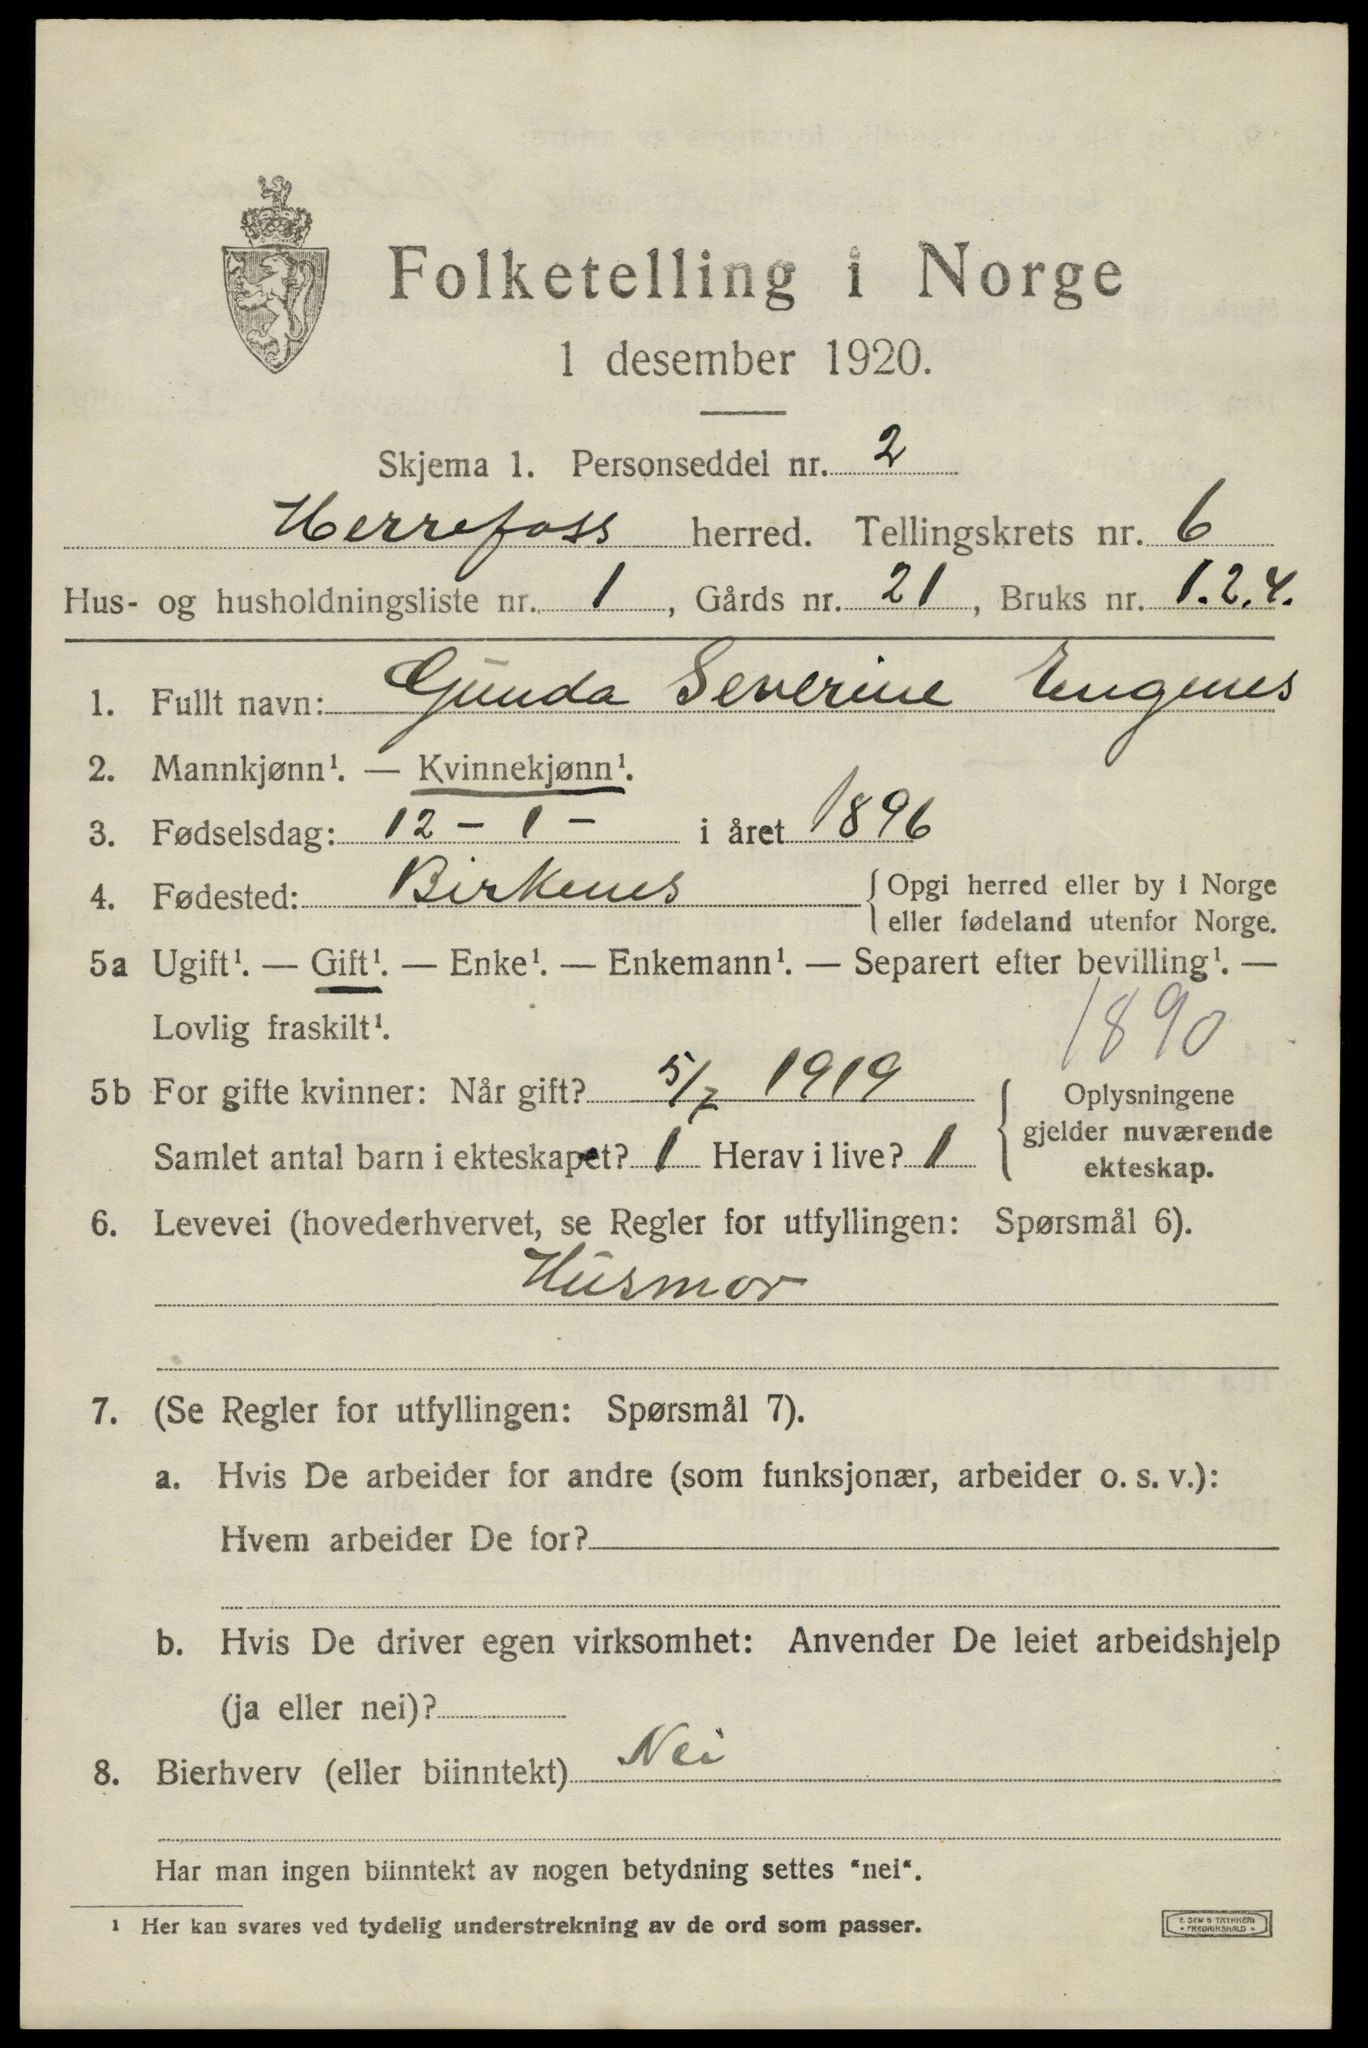 Folketelling i Norge
1 desember 1920.
Skjema 1. Personseddel nr. 2
Herrefoss herred. Tellingskrets nr. 6
Hus- og husholdningsliste nr. 1, Gårds nr. 21, Bruks nr. 1.2.4.
1. Fullt navn: Gunda Severine Engenes
2. Mannkjønn¹. — Kvinnekjønn¹.
3. Fødselsdag: 12 - 1 - i året 1896
4. Fødested: Birkenes { Opgi herred eller by i Norge
eller fødeland utenfor Norge.
5a Ugift¹. — Gift¹. — Enke¹. — Enkemann¹. — Separert efter bevilling¹. —
Lovlig fraskilt¹.
1890
5b For gifte kvinner: Når gift? 5/7 1919
Samlet antal barn i ekteskapet? 1 Herav i live? 1
{ Oplysningene
gjelder nuværende
ekteskap.
6. Levevei (hovederhvervet, se Regler for utfyllingen: Spørsmål 6).
Husmor
7. (Se Regler for utfyllingen: Spørsmål 7).
a. Hvis De arbeider for andre (som funksjonær, arbeider o. s. v.):
Hvem arbeider De for?
b. Hvis De driver egen virksomhet: Anvender De leiet arbeidshjelp
(ja eller nei)?
8. Bierhverv (eller biinntekt) Nei
Har man ingen biinntekt av nogen betydning settes "nei".
¹ Her kan svares ved tydelig understrekning av de ord som passer.
E. SEM'S TRYKKERI
FREDRIKSHALD